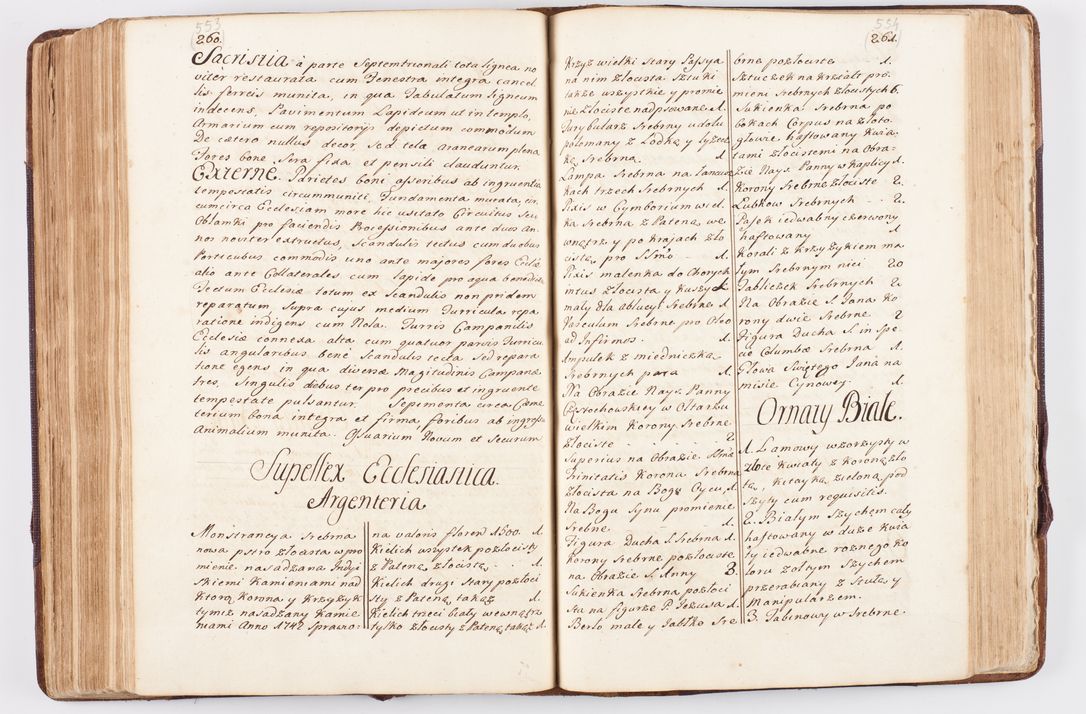 553
260.
Sacristia à parte Septemtrionali tota lignea no
vitèr restaurata cum Fenestra integra cancel
lis ferreis munita, in qua Tabulatum Ligneum
indecens, Pavimentum Lapideum ut in templo,
Armarium cum repositorijs depictum commodum
De cætero nullus decor, sed telæ aranearum plena
Fores bonæ, Sera fixa et pensili clauduntur.
Externe. Parietes boni asseribus ab ingruentia
tempestatis circummuniti, Fundamenta murata, cir
cumcirca Ecclesiam more hic usitato Circuitus seu
Obłamki pro faciendis Processionibus ante duos An
nos noviter extructus, Scandulis tectus cum duobus
Porticubus commodis uno ante majores fores Eccle
alio ante Collaterales cum lapide pro aqua benedicta
Tectum Ecclesiæ totum ex Scandulis non pridem
reparatum, Supra cujus medium Turricula repa
ratione indigens cum Nola. Turris Campanilis
Ecclesiæ connexa alta cum quatuor parvis Turricu
lis angularibus bene Scandulis tecta sed repara
tione egens in qua diversæ Magitudinis Campanæ
tres, Singulis diebus ter pro precibus et ingruente
tempestate pulsantur. Sepimenta circa Cæme
terium bona integra et firma foribus ab ingressu
Animalium munita. Ossuarium Novum et Securum
Supellex Ecclesiastica.
Argenteria
Monstrancya Srebrna
nowa pstro złocista w pro
mienie nasadzana Indyi
skiemi Kamieniami nad
ktorą Korona y Krzyżyk
tymiż nasadzany Kamie
niami Anno 1742 Sprawio-
na valoris floren 1500. 1.
Kielich wszytek pozłocisty
z Pateną złocistą . . . 1.
Kielich drugi Stary pozłoci
sty z Pateną takąż 1.
Kielich trzeci biały wewnątrz
tylko złocisty z Pateną takąż 1.
554
261.
Krzyż wielki stary Passya
na nim złocista Sztuki
także wszystkie y promie
nie złociste nadpsowane 1.
Turybularz Srebrny u dołu
połomany z Łodką y łyżecz
ką Srebrną 1.
Lampa Srebrna na łancusz
kach trzech Srebrnych 1.
Pixis w Cymborium wiel
ka Srebrna z Pateną, we
wnątrz y po krajach zło
cista, pro SSmo 1.
Pixis malenka do Chorych
intus złocista y kuszyk
mały dla ablucyi Srebrne 1
Vasculum Srebrne pro Oleo
ad Infirmos 1.
Ampułek z miedniczką
Srebrnych para 1.
Na Obrazie Nays. Panny
Częstochowskiey w Ołtarzu
wielkim Korony Srebrne
złociste 2
Superius na Obrazie SSmæ
Trinitatis Korona Srebrna
złocista na Bogu Oycu, 1.
Na Bogu Synu promienie
Srebne 1.
Figura Ducha S. Srebrna 1.
Korony Srebrne pozłociste
na Obrazie S. Anny 3.
Sukienka Srebrna pozłoci
sta na figurze P. Jezusa 1.
Berło małe y Jabłko Sre
brne pozłociste 1.
Sztuczek na kształt pro-
mieni Srebrnych złocistych 6.
Sukienka Srebrna po
bokach Corpus na złoto-
głowie haftowany kwia-
tami złocistemi na Obra-
zie Nays. Panny w Kaplicy 1.
Korony Srebrne złociste 2.
Lubkow Srebrnych 2.
Pasek iedwabny czerwony
haftowany 1
Korali z Krzyżykiem ma
łym Srebrnym nici 20
Tabliczek Srebrnych 2.
Na Obrazie S. Jana Ko
rony dwie Srebrne 2
Figura Ducha S. in Spe
cie Columbæ Srebrna 1.
Głowa Swiętego Jana na
misie Cynowey 1.
Ornaty Białe.
1. Lamowy wzorzysty w
złote kwiaty z koroną zło
tą, kitayką zieloną pod
szyty cum requisitis.
2. Białym Szychem cały
haftowany w duże kwia
ty iedwabne rożnego ko
loru żołtym Szychem
przerabiany z Stułą y
Manipularzem.
3. Tabinowy w Srebrne